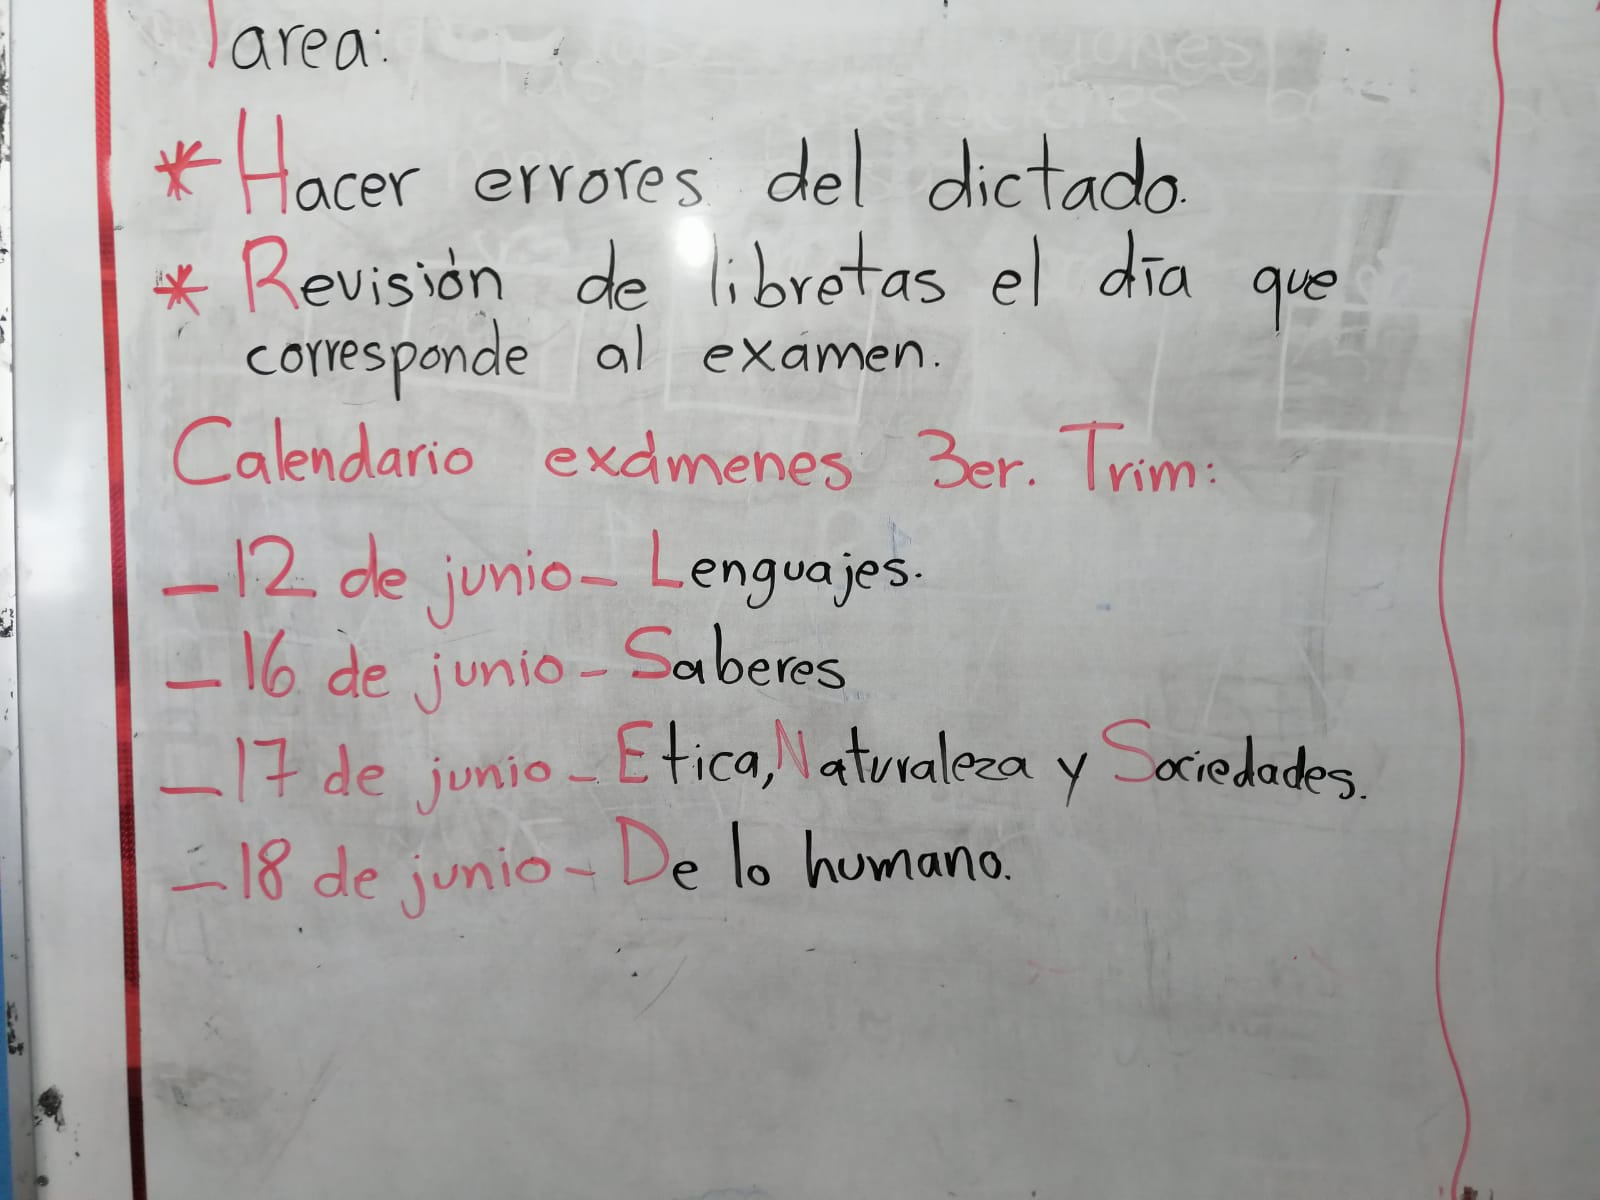 Tarea:
* Hacer errores del dictado.
* Revisión de libretas el día que
corresponde al examen.
Calendario exámenes 3er. Trim:
- 12 de junio - Lenguajes.
- 16 de junio - Saberes
- 17 de junio - Etica, Naturaleza y Sociedades.
- 18 de junio - De lo humano.